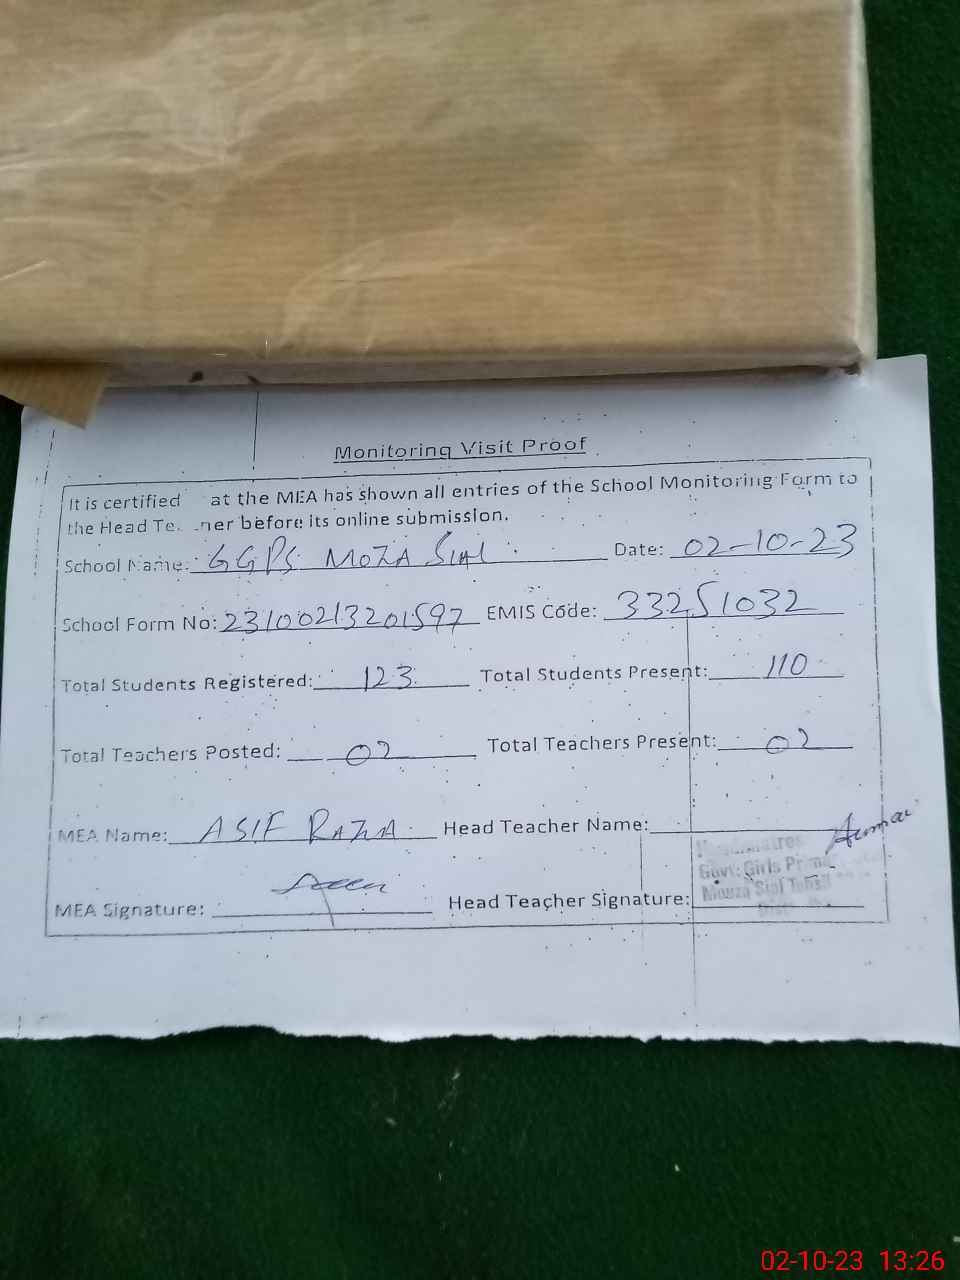 Monitoring Visit Proof
It is certified at the MEA has shown all entries of the School Monitoring Form to
the Head Te ner before its online submission.
School Name: GGPS MOZA SIAL Date: 02-10-23
School Form No: 23100213201597 EMIS Code: 33251032
Total Students Registered: 123 Total Students Present: 110
Total Teachers Posted: 02 Total Teachers Present: 02
MEA Name: ASIF RAZA Head Teacher Name:
Govt: Girls Prima
Mouza Sial Tehsil
MEA Signature: Head Teacher Signature:
02-10-23 13:26